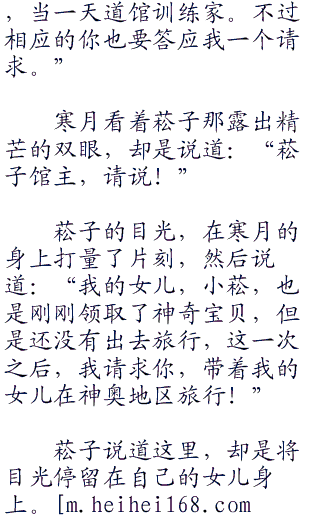 ，当一天道馆训练家。不过
相应的你也要答应我一个请
求。”
寒月看着菘子那露出精
芒的双眼，却是说道：“菘
子馆主，请说！”
菘子的目光，在寒月的
身上打量了片刻，然后说
道：“我的女儿，小菘，也
是刚刚领取了神奇宝贝，但
是还没有出去旅行，这一次
之后，我请求你，带着我的
女儿在神奥地区旅行！”
菘子说道这里，却是将
目光停留在自己的女儿身
上。[m.heihei168.com